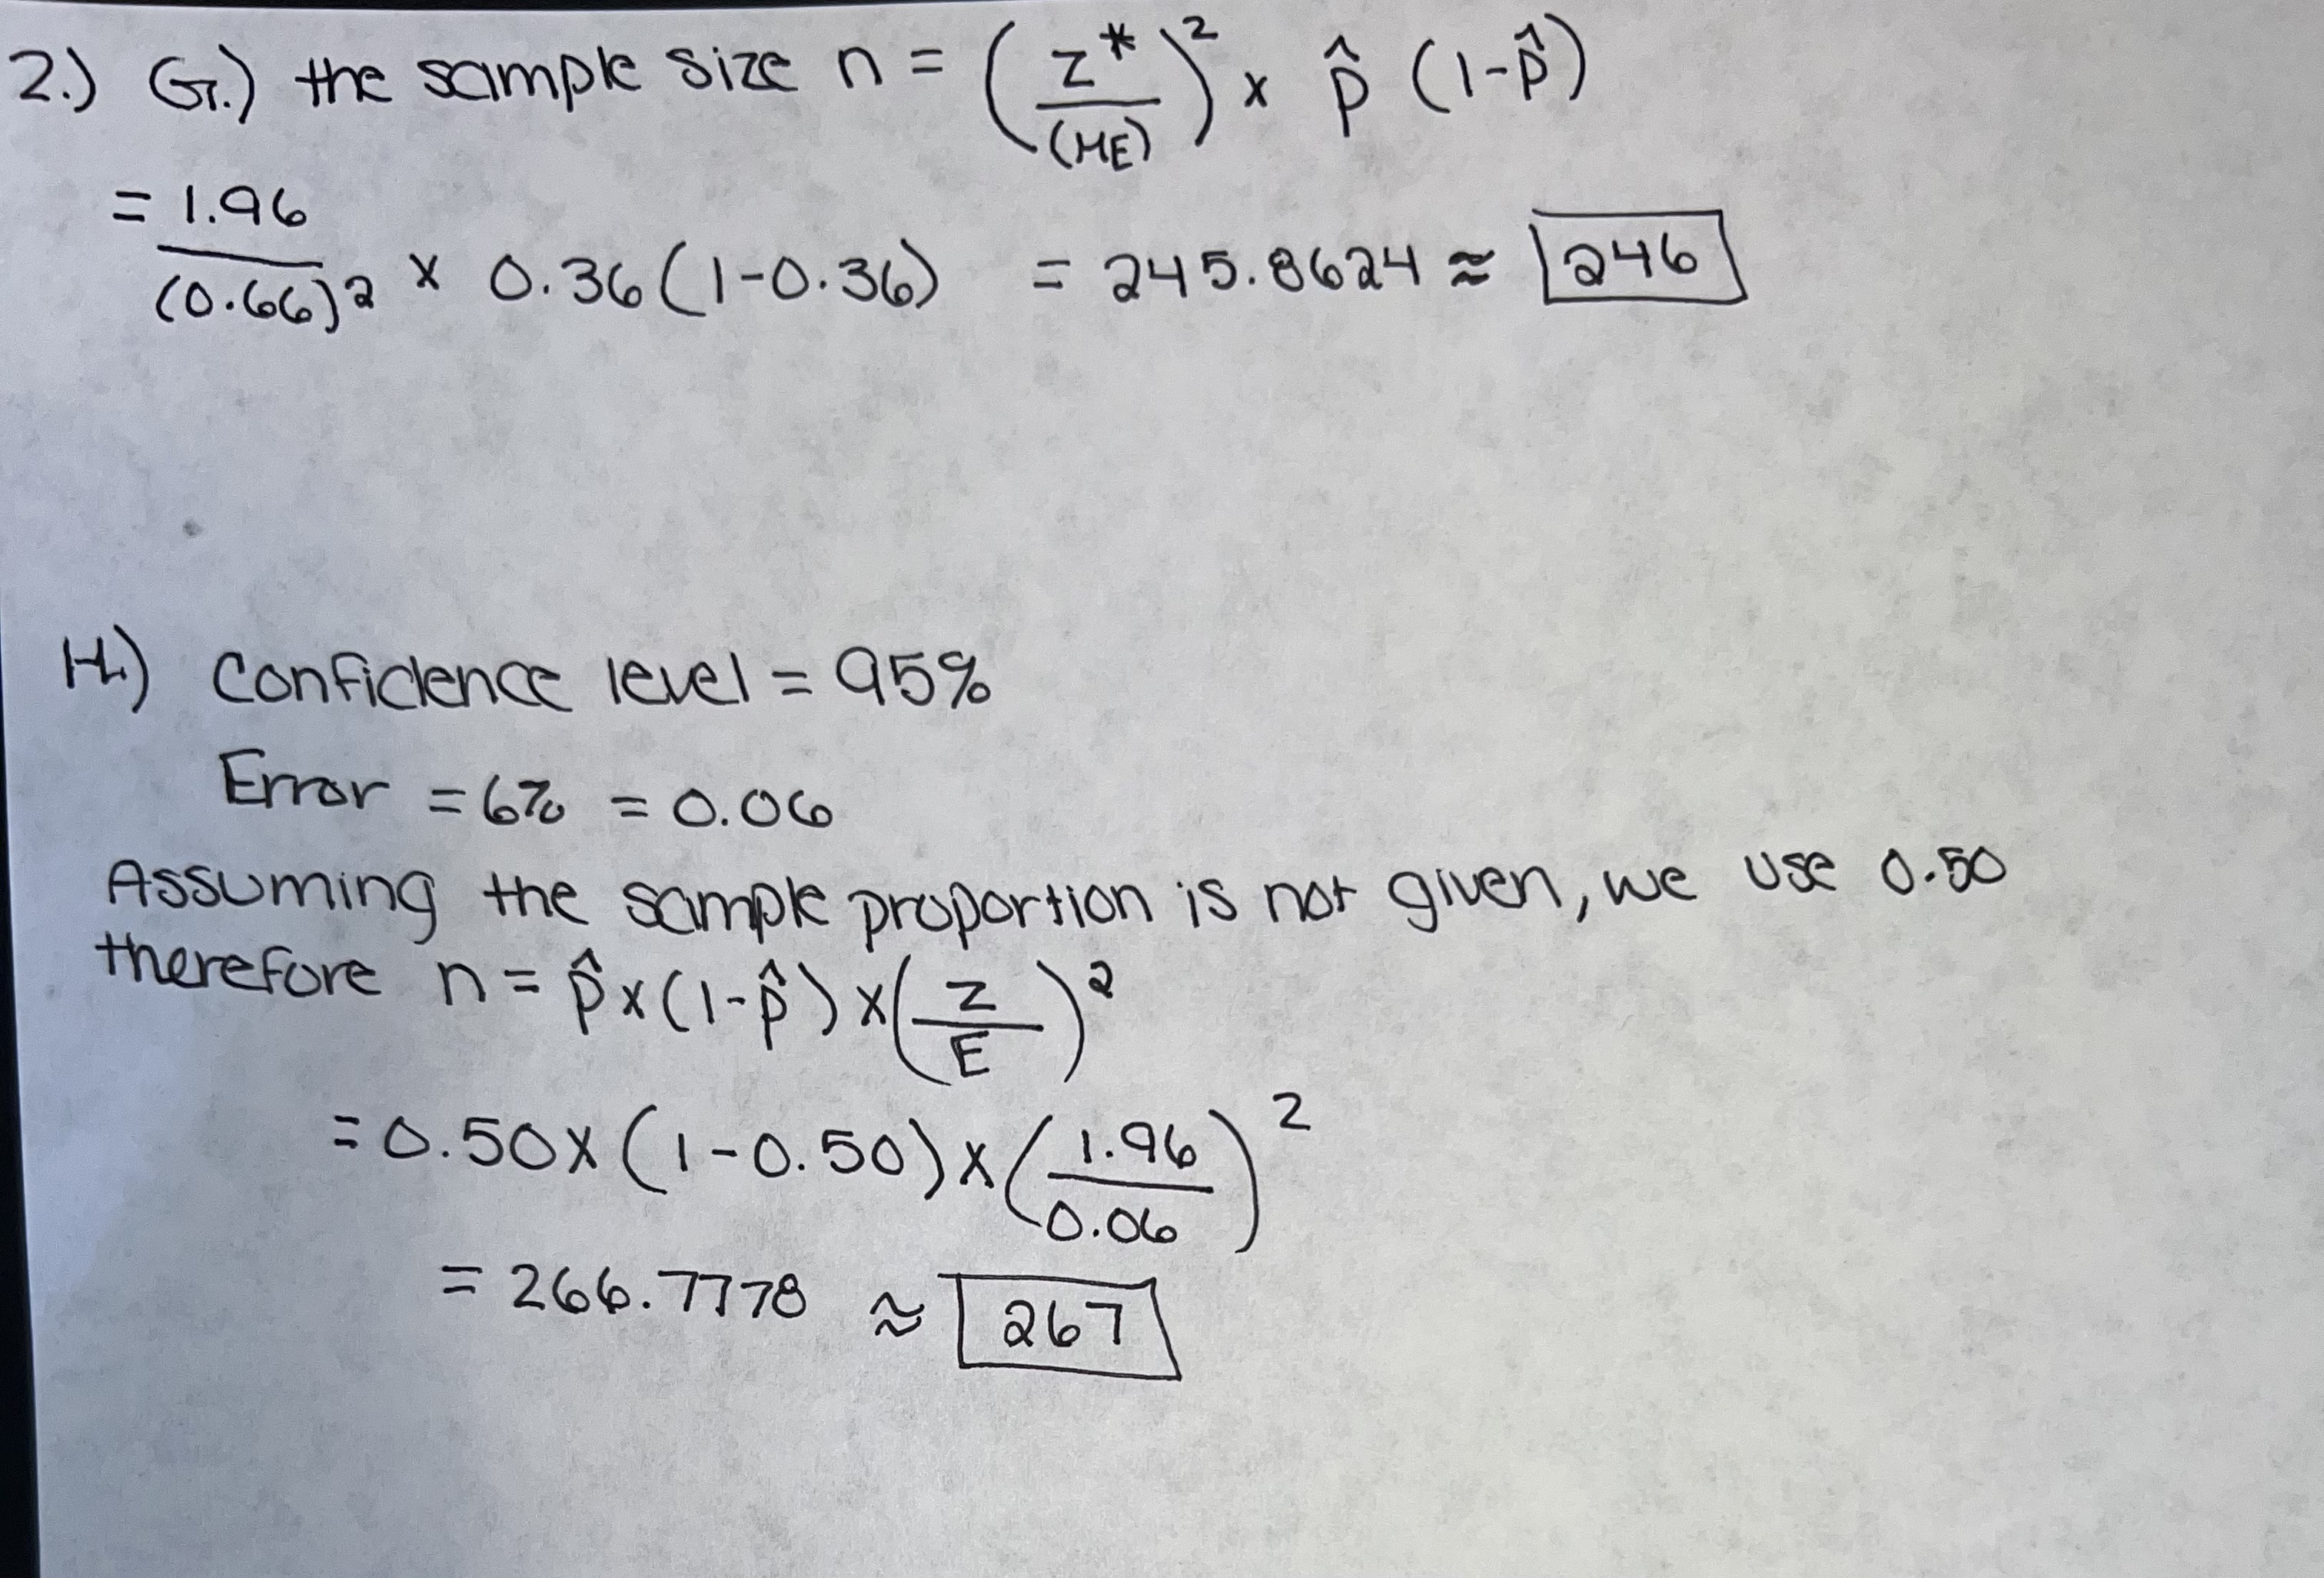 2.) G.) the sample size n = (z*/(ME))² x p̂ (1-p̂)
= 1.96/(0.66)2 x 0.36(1-0.36) = 245.8624 ≈ 246
H.) Confidence level = 95%
Error = 6% = 0.06
Assuming the sample proportion is not given, we use 0.50
therefore n = p̂ x (1-p̂) x (z/E)²
= 0.50 x (1-0.50) x (1.96/0.06)²
= 266.7778 ≈ 267